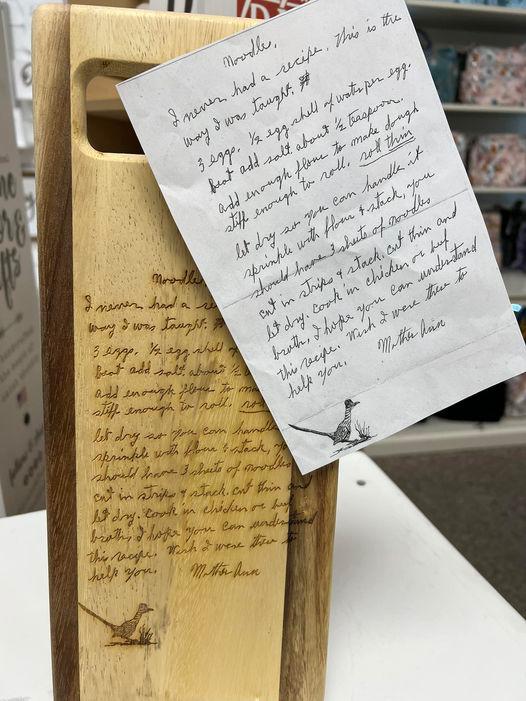 Noodles.
I never had a recipe. This is the
way I was taught.
3 eggs. 1/2 egg shell of water per egg.
beat add salt about 1/2 teaspoon.
add enough flour to make dough
stiff enough to roll. roll thin
let dry so you can handle it
sprinkle with flour & stack, you
should have 3 sheets of noodles
cut in strips & stack. cut thin and
let dry. Cook in chicken or beef
broth, I hope you can understand
this recipe. Wish I were there to
help you. Mother Ann
Noodles
I never had a re
way I was taught.
3 eggs. 1/2 egg shell of
beat add salt about 1/2
add enough flour to ma
stiff enough to roll. ro
let dry so you can handle
sprinkle with flour & stack, y
should have 3 sheets of noodles
cut in strips & stack. cut thin and
let dry. Cook in chicken or beef
broth, I hope you can understand
this recipe. Wish I were there to
help you. Mother Ann